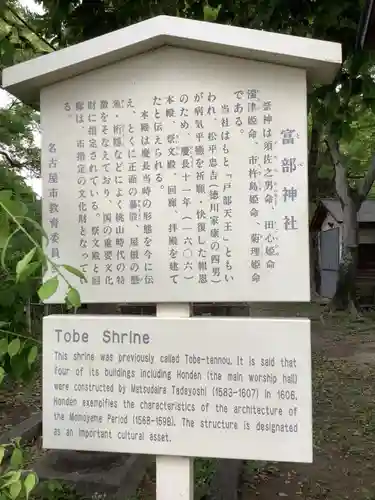 富部神社
祭神は須佐之男命、田心
湍津姫命、市杵島姫命、菊理姫命
である。
当社はもと「戸部天王」ともい
われ、松平忠吉(徳川家康の四男)
が病気平癒を祈願・快復した報恩
のため、慶長十一年(一六〇六)
本殿、祭文殿、回廊、拝殿を建て
たと伝えられる。
本殿は慶長当時の形態を今に伝
え、とくに正面の蟇股、屋根の懸
魚・桁隠などによく桃山時代の特
徴をそなえており、国の重要文化
財に指定されている。祭文殿と回
廊は、市指定の文化財となってい
る。
名古屋市教育委員
Tobe Shrine
This shrine was previously called Tobe-tennou. It is said that
four of its buildings including Honden (the main worship hall)
were constructed by Matsudaira Tadayoshi (1583-1607) in 1606.
Honden exemplifies the characteristics of the architecture of
the Momoyama Period (1568-1598). The structure is designated
as an important cultural asset.